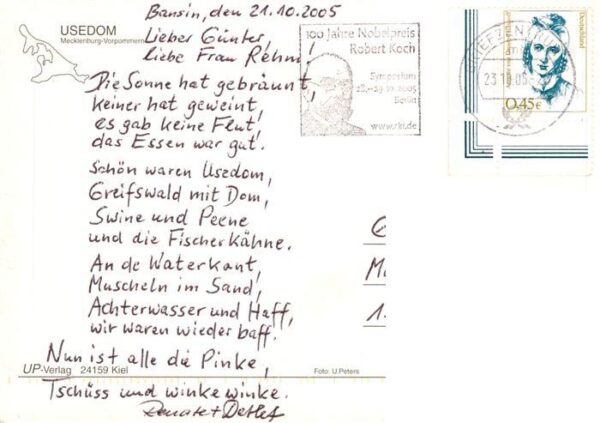 USEDOM
Mecklenburg-Vorpommern
Bansin, den 21.10.2005
Lieber Günter,
liebe Frau Rehm,
Die Sonne hat gebräunt,
keiner hat geweint,
es gab keine Flut,
das Essen war gut.
Schön waren Usedom,
Greifswald mit Dom,
Swine und Peene
und die Fischerkähne.
An de Waterkant,
Muscheln im Sand,
Achterwasser und Haff,
wir waren wieder baff.
Nun ist alle die Pinke,
Tschüss und winke winke.
Renate + Detlef
UP-Verlag 24159 Kiel
Foto: U.Peters
100 Jahre Nobelpreis
Robert Koch
Symposium
28.-29.10.2005
Berlin
www.rki.de
BRIEFZENTRUM
23.10.05
Deutschland
0,45€
G
M
1